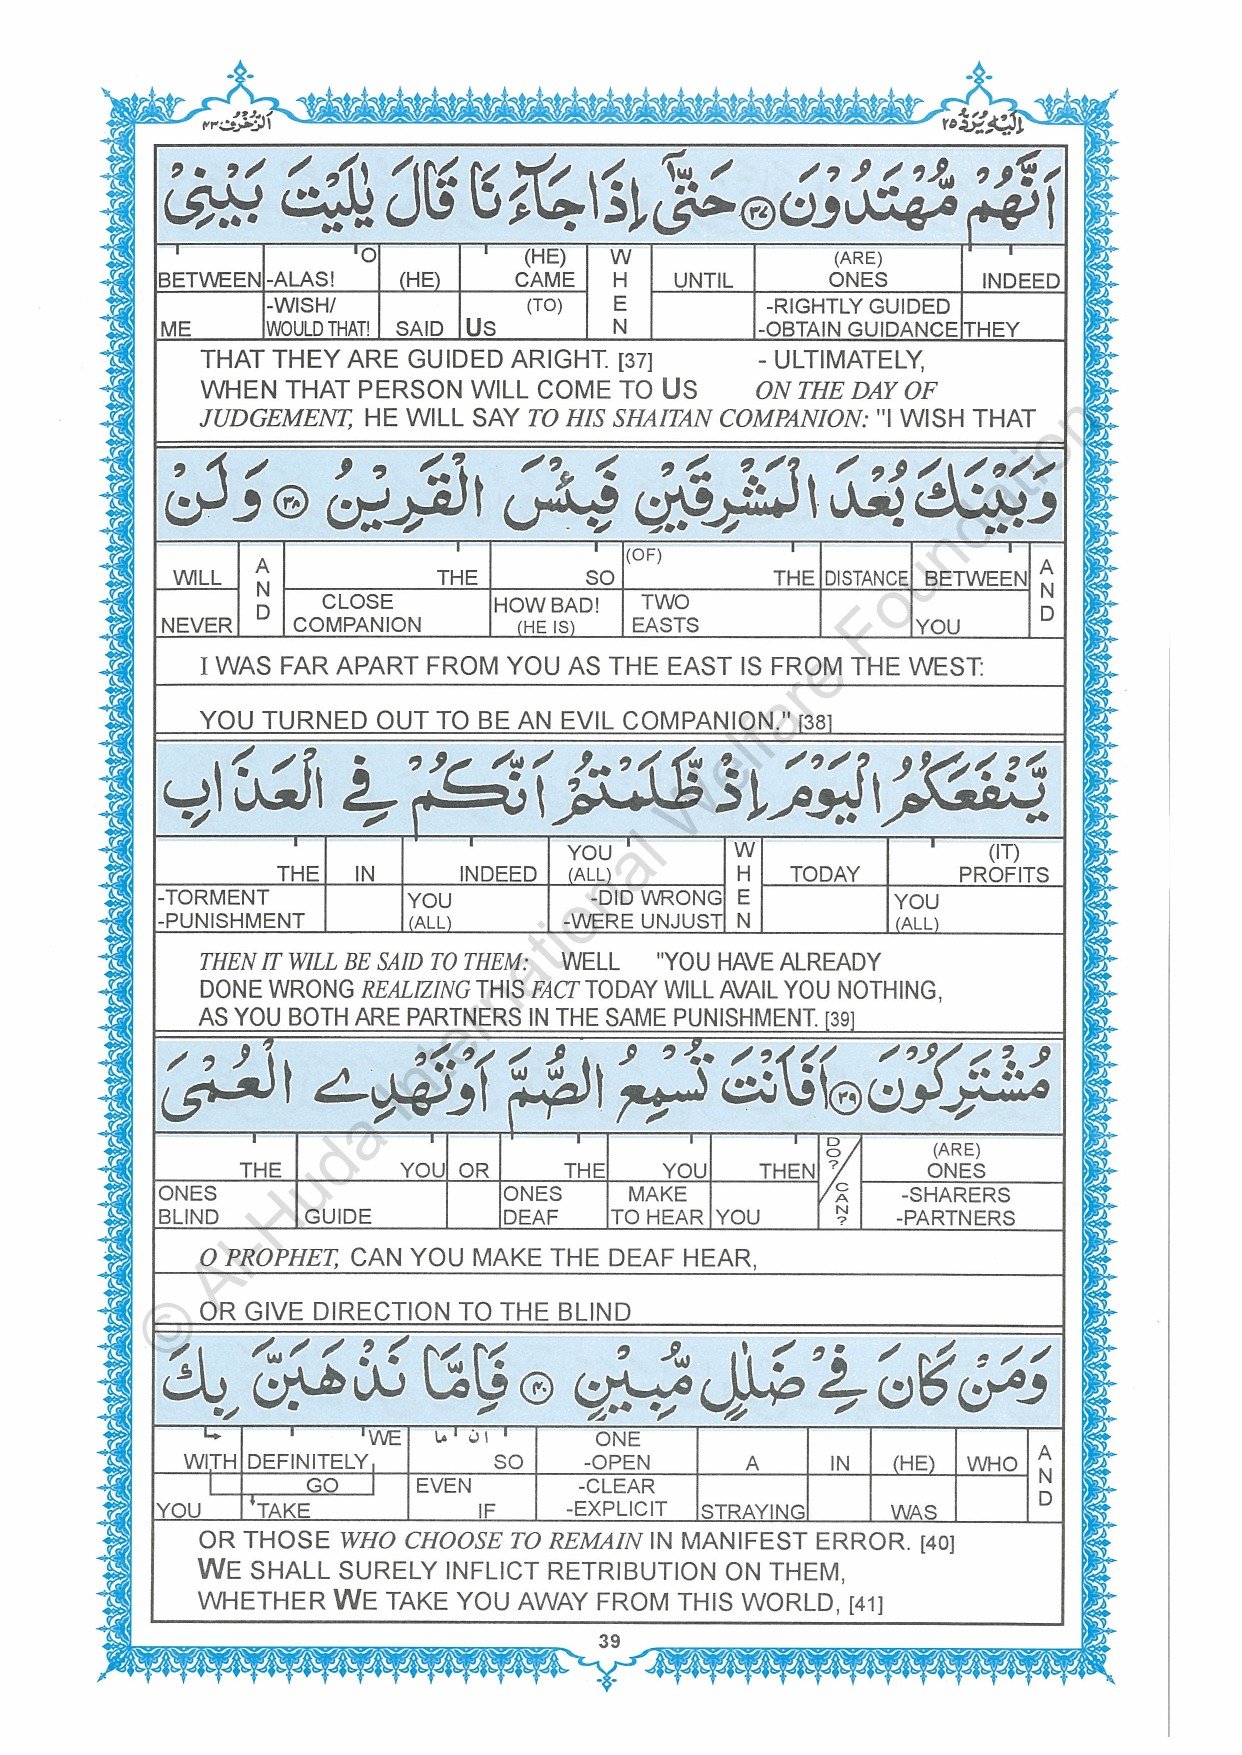 الزخرف ٤٣
اليه يرد ٢٥
اَنَّهُمْ مُّهْتَدُوْنَ ﴿٣٧﴾ حَتّٰٓى اِذَا جَآءَنَا قَالَ يٰلَيْتَ بَيْنِىْ
BETWEEN -ALAS! O (HE) (HE) CAME WHEN UNTIL (ARE) ONES INDEED
ME -WISH/ WOULD THAT! SAID US (TO) -RIGHTLY GUIDED -OBTAIN GUIDANCE THEY
THAT THEY ARE GUIDED ARIGHT. [37] - ULTIMATELY,
WHEN THAT PERSON WILL COME TO US ON THE DAY OF
JUDGEMENT, HE WILL SAY TO HIS SHAITAN COMPANION: "I WISH THAT
وَبَيْنَكَ بُعْدَ الْمَشْرِقَيْنِ فَبِئْسَ الْقَرِيْنُ ﴿٣٨﴾ وَلَنْ
WILL AND THE SO (OF) THE DISTANCE BETWEEN AND
NEVER CLOSE COMPANION HOW BAD! (HE IS) TWO EASTS YOU
I WAS FAR APART FROM YOU AS THE EAST IS FROM THE WEST:
YOU TURNED OUT TO BE AN EVIL COMPANION." [38]
يَّنْفَعَكُمُ الْيَوْمَ اِذْ ظَّلَمْتُمْ اَنَّكُمْ فِى الْعَذَابِ
THE IN INDEED YOU (ALL) WHEN TODAY (IT) PROFITS
-TORMENT -PUNISHMENT YOU (ALL) -DID WRONG -WERE UNJUST YOU (ALL)
THEN IT WILL BE SAID TO THEM: WELL "YOU HAVE ALREADY
DONE WRONG REALIZING THIS FACT TODAY WILL AVAIL YOU NOTHING,
AS YOU BOTH ARE PARTNERS IN THE SAME PUNISHMENT. [39]
مُشْتَرِكُوْنَ ﴿٣٩﴾ اَفَاَنْتَ تُسْمِعُ الصُّمَّ اَوْ تَهْدِے الْعُمْىَ
THE YOU OR THE YOU THEN DO? / CAN? (ARE) ONES
ONES BLIND GUIDE ONES DEAF MAKE TO HEAR YOU -SHARERS -PARTNERS
O PROPHET, CAN YOU MAKE THE DEAF HEAR,
OR GIVE DIRECTION TO THE BLIND
وَمَنْ كَانَ فِىْ ضَلٰلٍ مُّبِيْنٍ ﴿٤٠﴾ فَاِمَّا نَذْهَبَنَّ بِكَ
WITH DEFINITELY WE ان ما SO ONE -OPEN A IN (HE) WHO AND
YOU GO TAKE EVEN IF -CLEAR -EXPLICIT STRAYING WAS
OR THOSE WHO CHOOSE TO REMAIN IN MANIFEST ERROR. [40]
WE SHALL SURELY INFLICT RETRIBUTION ON THEM,
WHETHER WE TAKE YOU AWAY FROM THIS WORLD, [41]
39
© Al-Huda International Welfare Foundation